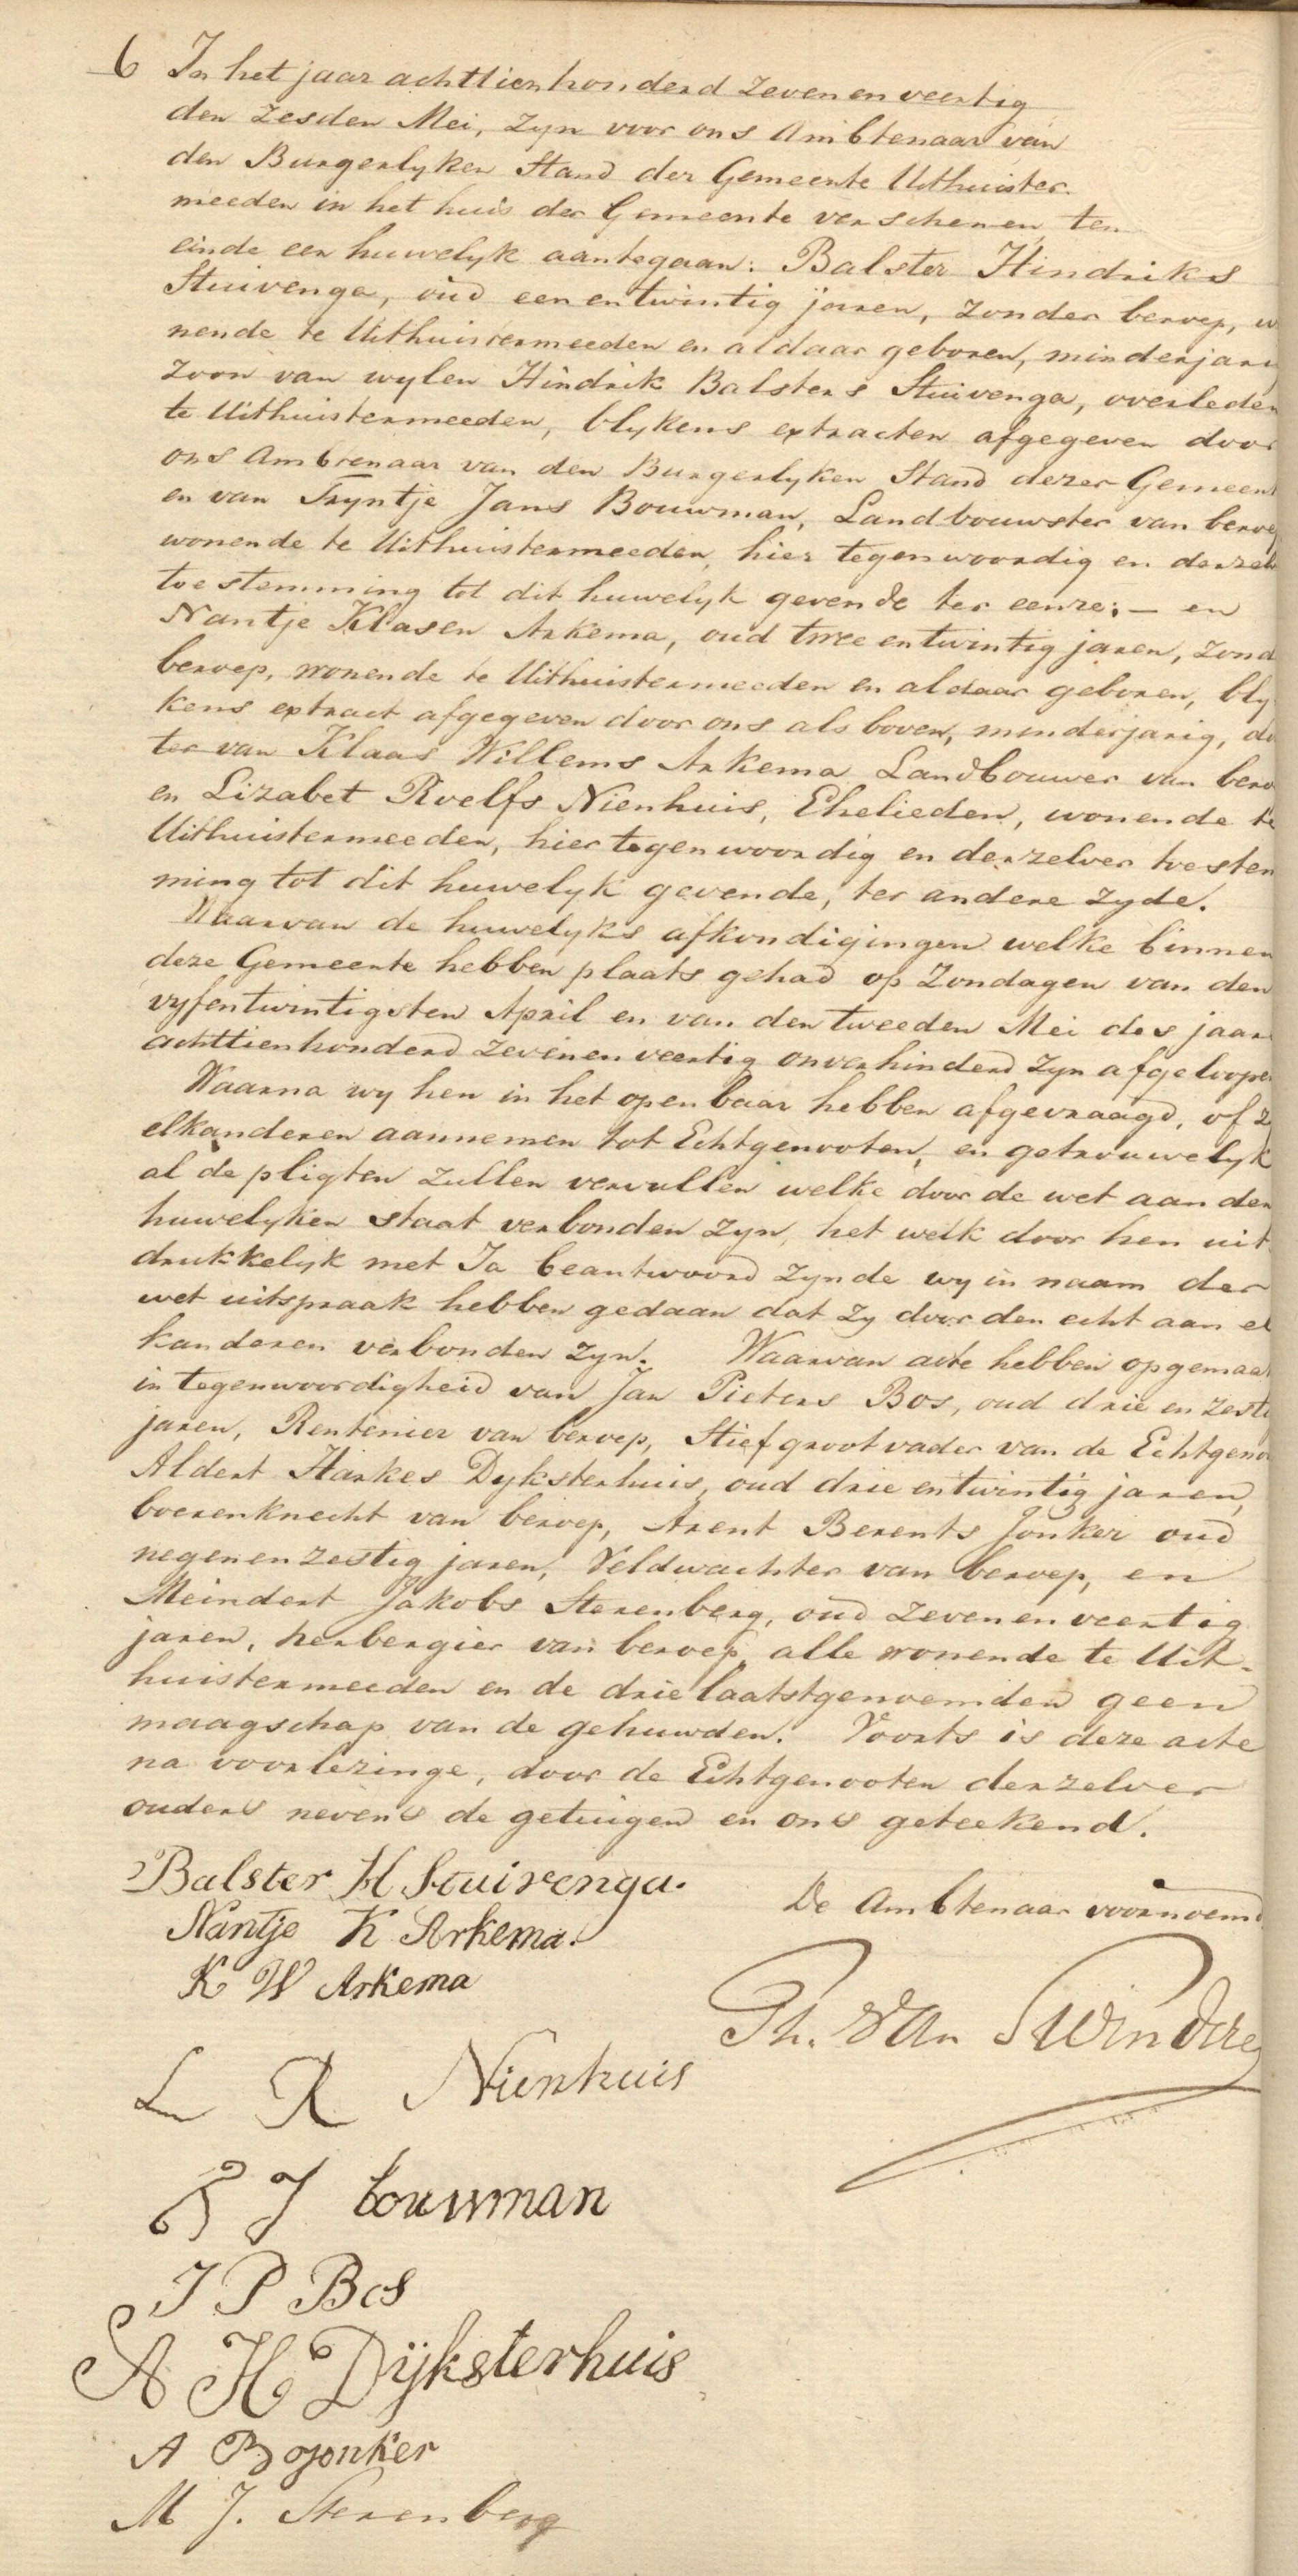 6 In het jaar achttienhonderd zevenenveertig
den zesden Mei, zyn voor ons Ambtenaar van
den Burgerlyken Stand der Gemeente Uithuister-
meeden in het huis der Gemeente verschenen, ten
einde een huwelyk aantegaan: Balster Hindriks
Stuivenga, oud eenentwintig jaren, zonder beroep, w
nende te Uithuistermeeden en aldaar geboren, minderjari
zoon van wylen Hindrik Balsters Stuivenga, overleden
te Uithuistermeeden, blykens extracten afgegeven door
ons Ambtenaar van den Burgerlyken Stand dezer Gemeent
en van Tryntje Jans Bouwman, Landbouwster van beroe
wonende te Uithuistermeeden, hier tegenwoordig en derzelv
toestemming tot dit huwelyk gevende ter eenre; – en
Nantje Klasen Arkema, oud twee entwintig jaren, zond
beroep, wonende te Uithuistermeeden en aldaar geboren, bly
kens extract afgegeven door ons als boven, minderjarig, do
ter van Klaas Willems Arkema Landbouwer van bero
en Lizabet Roelfs Nienhuis, Ehelieden, wonende te
Uithuistermeeden, hier tegenwoordig en derzelver toestem
ming tot dit huwelyk gevende, ter andere zyde.
Waarvan de huwelyks afkondigingen welke binnen
deze Gemeente hebben plaats gehad op Zondagen van den
vyfentwintigsten April en van den tweeden Mei des jaar
achttienhonderd zevenenveertig onverhinderd zyn afgeloopen
Waarna wy hen in het openbaar hebben afgevraagd, of z
elkanderen aannemen tot Echtgenooten, en getrouwelyk
al de pligten zullen vervullen welke door de wet aan den
huwelyken staat verbonden zyn, het welk door hen uit
drukkelyk met Ja beantwoord zynde wy in naam der
wet uitspraak hebben gedaan dat zy door den echt aan el
kanderen verbonden zyn. Waarvan acte hebben opgemaa
in tegenwoordigheid van Jan Pieters Bos, oud drie en zesti
jaren, Rentenier van beroep, Stiefgrootvader van de Echtgeno
Aldert Harkes Dyksterhuis, oud drie entwintig jaren,
boerenknecht van beroep, Arent Berents Jonker oud
negenenzestig jaren, Veldwachter van beroep, en
Meindert Jakobs Sterenberg, oud zevenenveertig
jaren, herbergier van beroep, alle wonende te Uit-
huistermeeden en de drie laatstgenoemden geen
maagschap van de gehuwden. Voorts is deze acte
na voorlezinge, door de Echtgenooten derzelver
ouders nevens de getuigen en ons geteekend.
Balster H Stuivenga.
De Ambtenaar voornoemd
Nantje K Arkema.
K W Arkema
Th. van Swindere
L R Nienhuis
T J bouwman
J P Bos
A H Dijksterhuis
A B Jonker
M J. Sterenberg